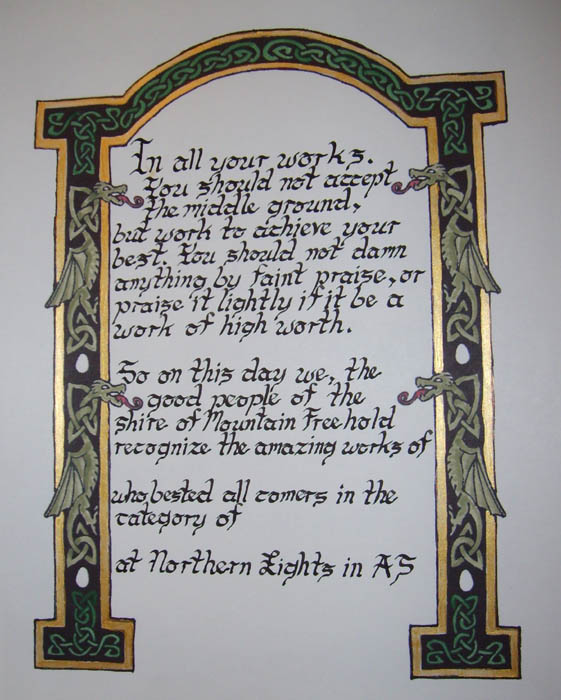 In all your works.
You should not accept
the middle ground,
but work to achieve your
best. You should not damn
anything by faint praise, or
praise it lightly if it be a
work of high worth.
So on this day we, the
good people of the
shire of Mountain Freehold
recognize the amazing works of
who, bested all comers in the
category of
at Northern Lights in AS